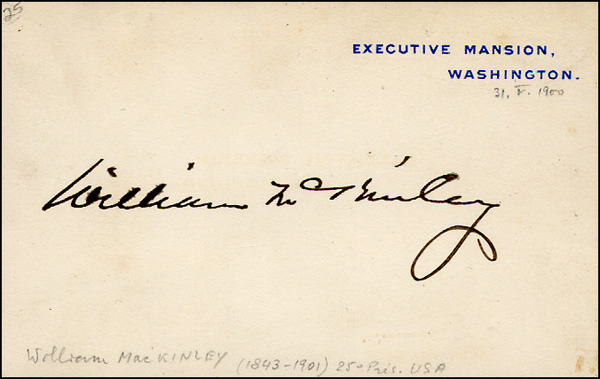 25
EXECUTIVE MANSION,
WASHINGTON.
31. V. 1900
William McKinley
William MacKINLEY (1843-1901) 25º Pris. USA